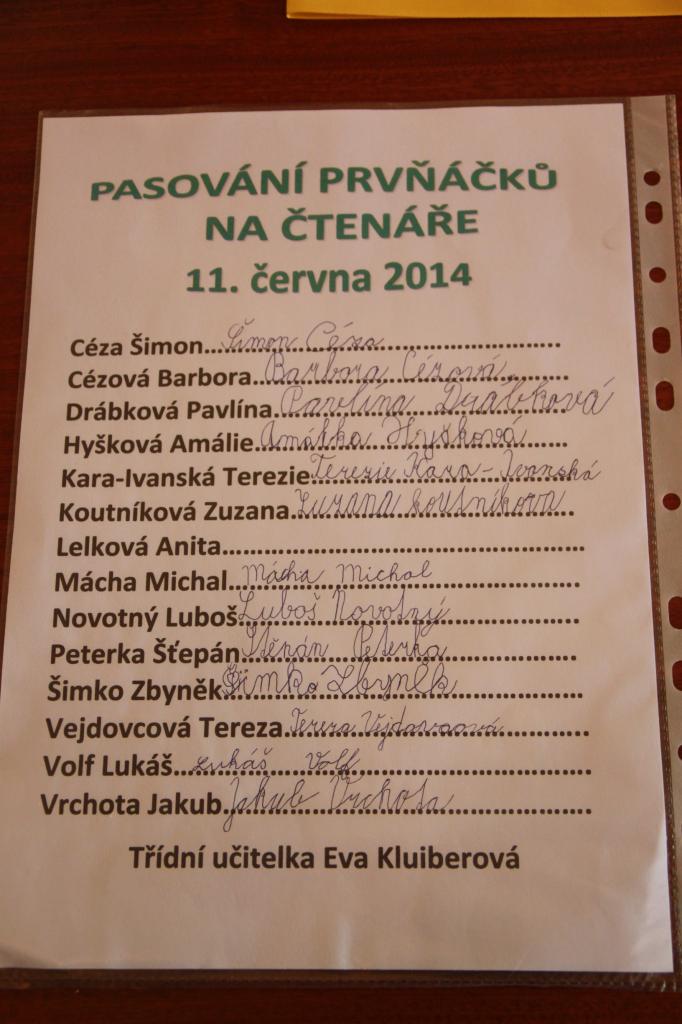 PASOVÁNÍ PRVŇÁČKŮ
NA ČTENÁŘE
11. června 2014
Céza Šimon...Šimon Céza...
Cézová Barbora...Barbora Cézová...
Drábková Pavlína...Pavlína Drábková
Hyšková Amálie...Amálka Hyšková...
Kara-Ivanská Terezie...Terezie Kara-Ivanská
Koutníková Zuzana...Zuzana Koutníková...
Lelková Anita...
Mácha Michal...Mácha Michal...
Novotný Luboš...Luboš Novotný...
Peterka Šťepán...Štěpán Peterka...
Šimko Zbyněk...Šimko Zbyněk...
Vejdovcová Tereza...Tereza Vejdovcová...
Volf Lukáš...Lukáš Volf...
Vrchota Jakub...Jakub Vrchota...
Třídní učitelka Eva Kluiberová